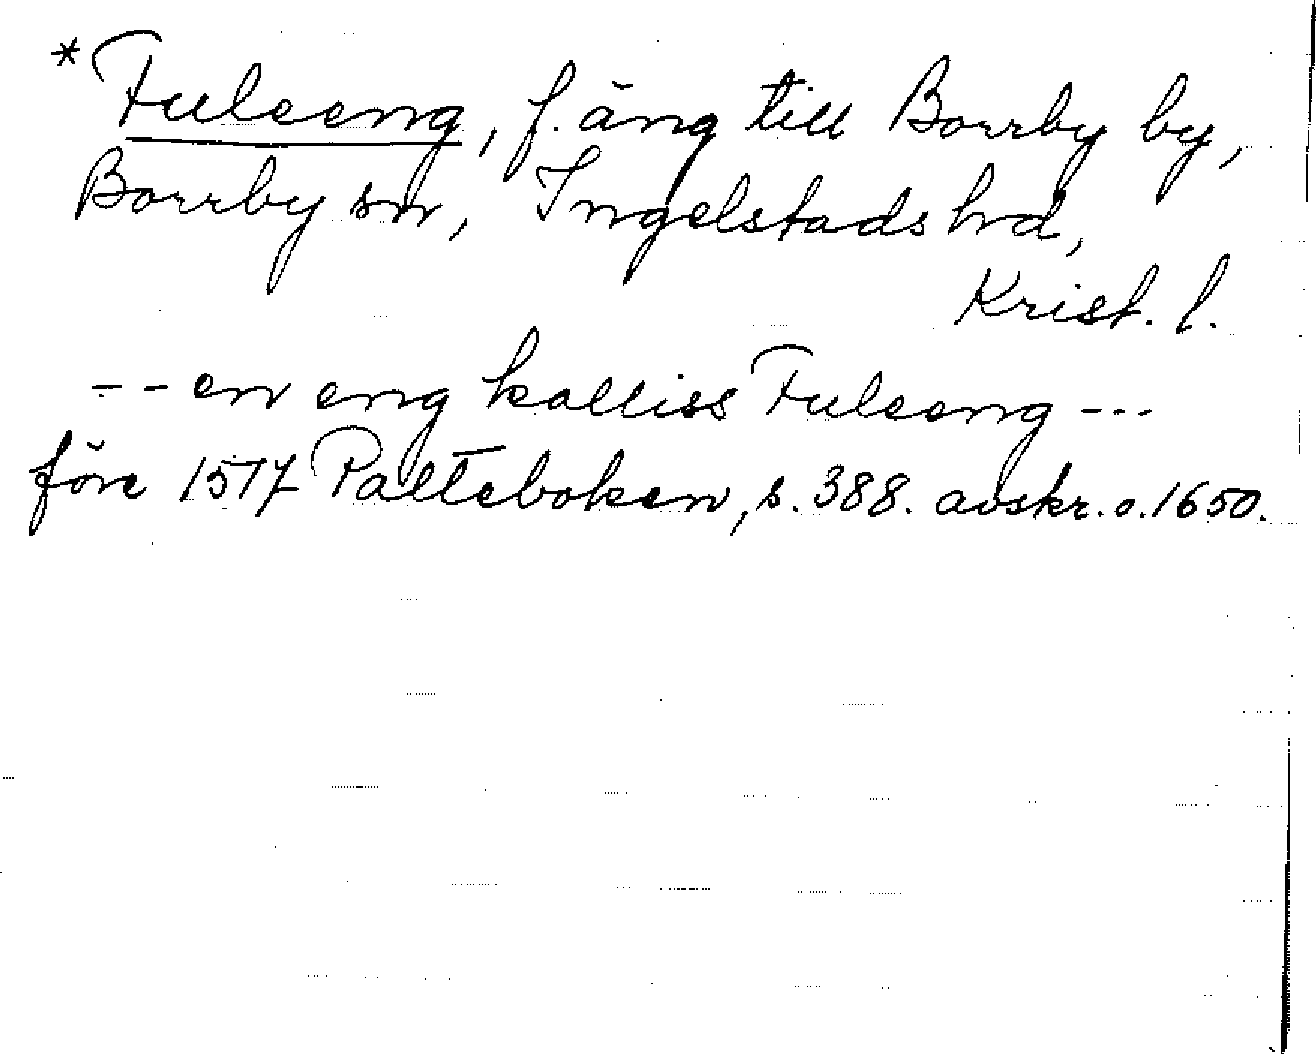 * Fuleeng, f. äng till Borrby by,
Borrby sn, Ingelstads hd,
Krist. l.
- - en eng kalliss Fuleeng - - -
före 1517 Palteboken, s. 388. avskr. o. 1650.